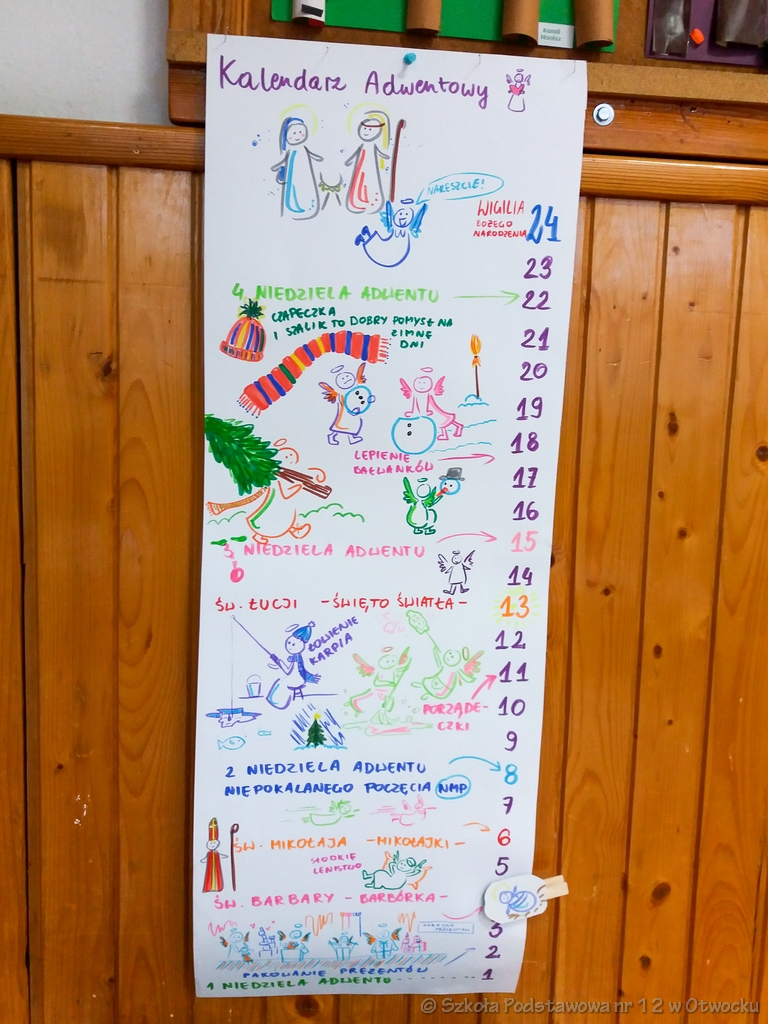 Kalendarz Adwentowy
NARESZCIE!
WIGILIA
BOŻEGO
NARODZENIA
24
23
4 NIEDZIELA ADWENTU
22
CZAPECZKA
I SZALIK TO DOBRY POMYSŁ NA
ZIMNE
DNI
21
20
19
18
LEPIENIE
BAŁWANKÓW
17
16
3 NIEDZIELA ADWENTU
15
14
ŚW. ŁUCJI - ŚWIĘTO ŚWIATŁA -
13
ŁOWIENIE
KARPIA
12
11
PORZĄDE-
CZKI
10
9
2 NIEDZIELA ADWENTU
8
NIEPOKALANEGO POCZĘCIA NMP
7
ŚW. MIKOŁAJA - MIKOŁAJKI -
6
SŁODKIE
LENISTWO
5
ŚW. BARBARY - BARBÓRKA -
3
2
PAKOWANIE PREZENTÓW
1 NIEDZIELA ADWENTU
1
© Szkoła Podstawowa nr 12 w Otwocku